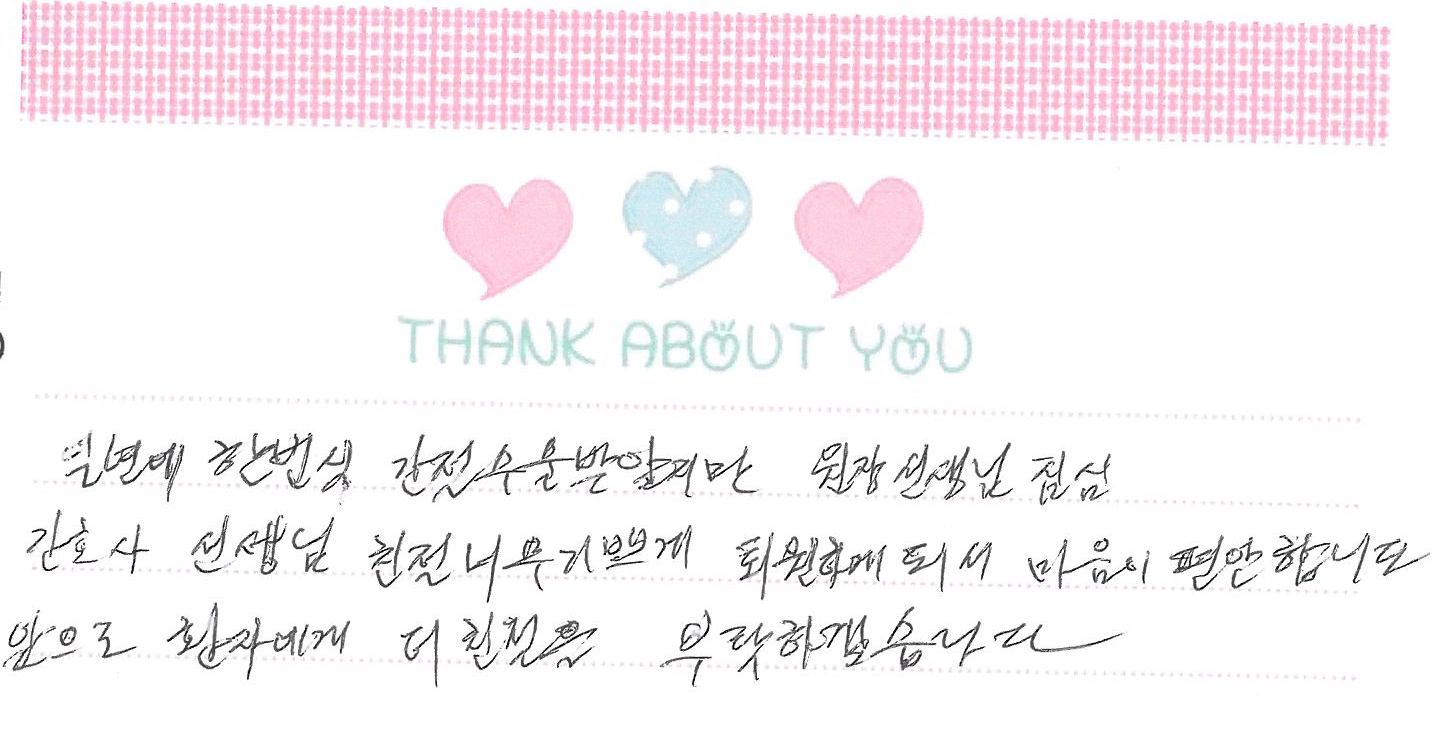 THANK ABOUT YOU
일년에 한번식 간절수술받았지만 원장선생님 점심
간호사 선생님 친절너무기쁘게 퇴원하게되서 마음이 편안합니다
앞으로 환자에게 더 친절을 부탁하겠습니다